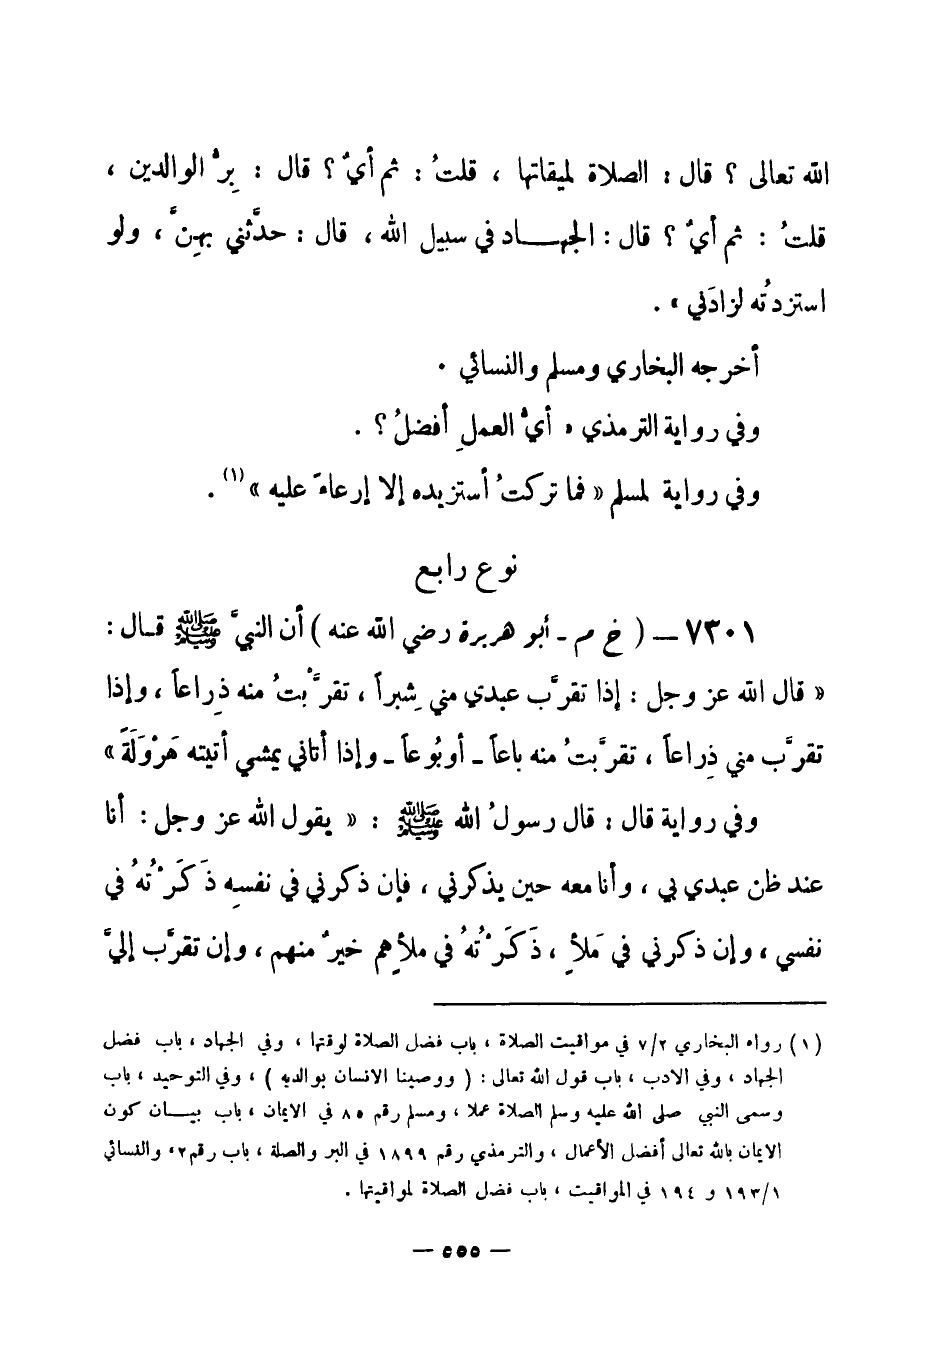 الله تعالى ؟ قال : الصلاة لميقاتها ، قلتُ : ثم أيٌ ؟ قال : بِرُّ الوالدين ،
قلتُ : ثم أيٌ ؟ قال : الجهـــاد في سبيل الله ، قال : حدَّثني بهِنَّ ، ولو
استزدتُه لزادَني » .
أخرجه البخاري ومسلم والنسائي .
وفي رواية الترمذي « أيُّ العملِ أفضلُ ؟ .
وفي رواية لمسلم « فما تركتُ أستزيده إلا إرعاءً عليه » (١) .
نوع رابع
٧٣٠١ – ( خ م - أبو هريرة رضي الله عنه ) أن النبيَّ ﷺ قـال :
« قال الله عز وجل : إذا تقرَّب عبدي مني شِبراً ، تقرَّبْتُ منه ذِراعاً ، وإذا
تقرَّب مني ذِراعاً ، تقرَّبتُ منه باعاً - أو بُوعاً - وإذا أتاني يمشي أتيته هَرْوَلَةً »
وفي رواية قال : قال رسولُ الله ﷺ : « يقول الله عز وجل : أنا
عند ظن عبدي بي ، وأنا معه حين يذكرني ، فإن ذكرني في نفسِه ذَكَرْتُهُ في
نفسي ، وإن ذكرني في مَلأٍ ، ذَكَرْتُهُ في ملأٍ هم خيرٌ منهم ، وإن تقرَّب إليَّ
(١) رواه البخاري ٧/٢ في مواقيت الصلاة ، باب فضل الصلاة لوقتها ، وفي الجهاد ، باب فضل
الجهاد ، وفي الادب ، باب قول الله تعالى : ( ووصينا الانسان بوالديه ) ، وفي التوحيد ، باب
وسمى النبي صلى الله عليه وسلم الصلاة عملا ، ومسلم رقم ٨٥ في الايمان ، باب بيـــان كون
الايمان بالله تعالى أفضل الأعمال ، والترمذي رقم ١٨٩٩ في البر والصلة ، باب رقم ٢ ، والنسائي
١٩٣/١ و ١٩٤ في المواقيت ، باب فضل الصلاة لمواقيتها .
– ٥٥٥ –